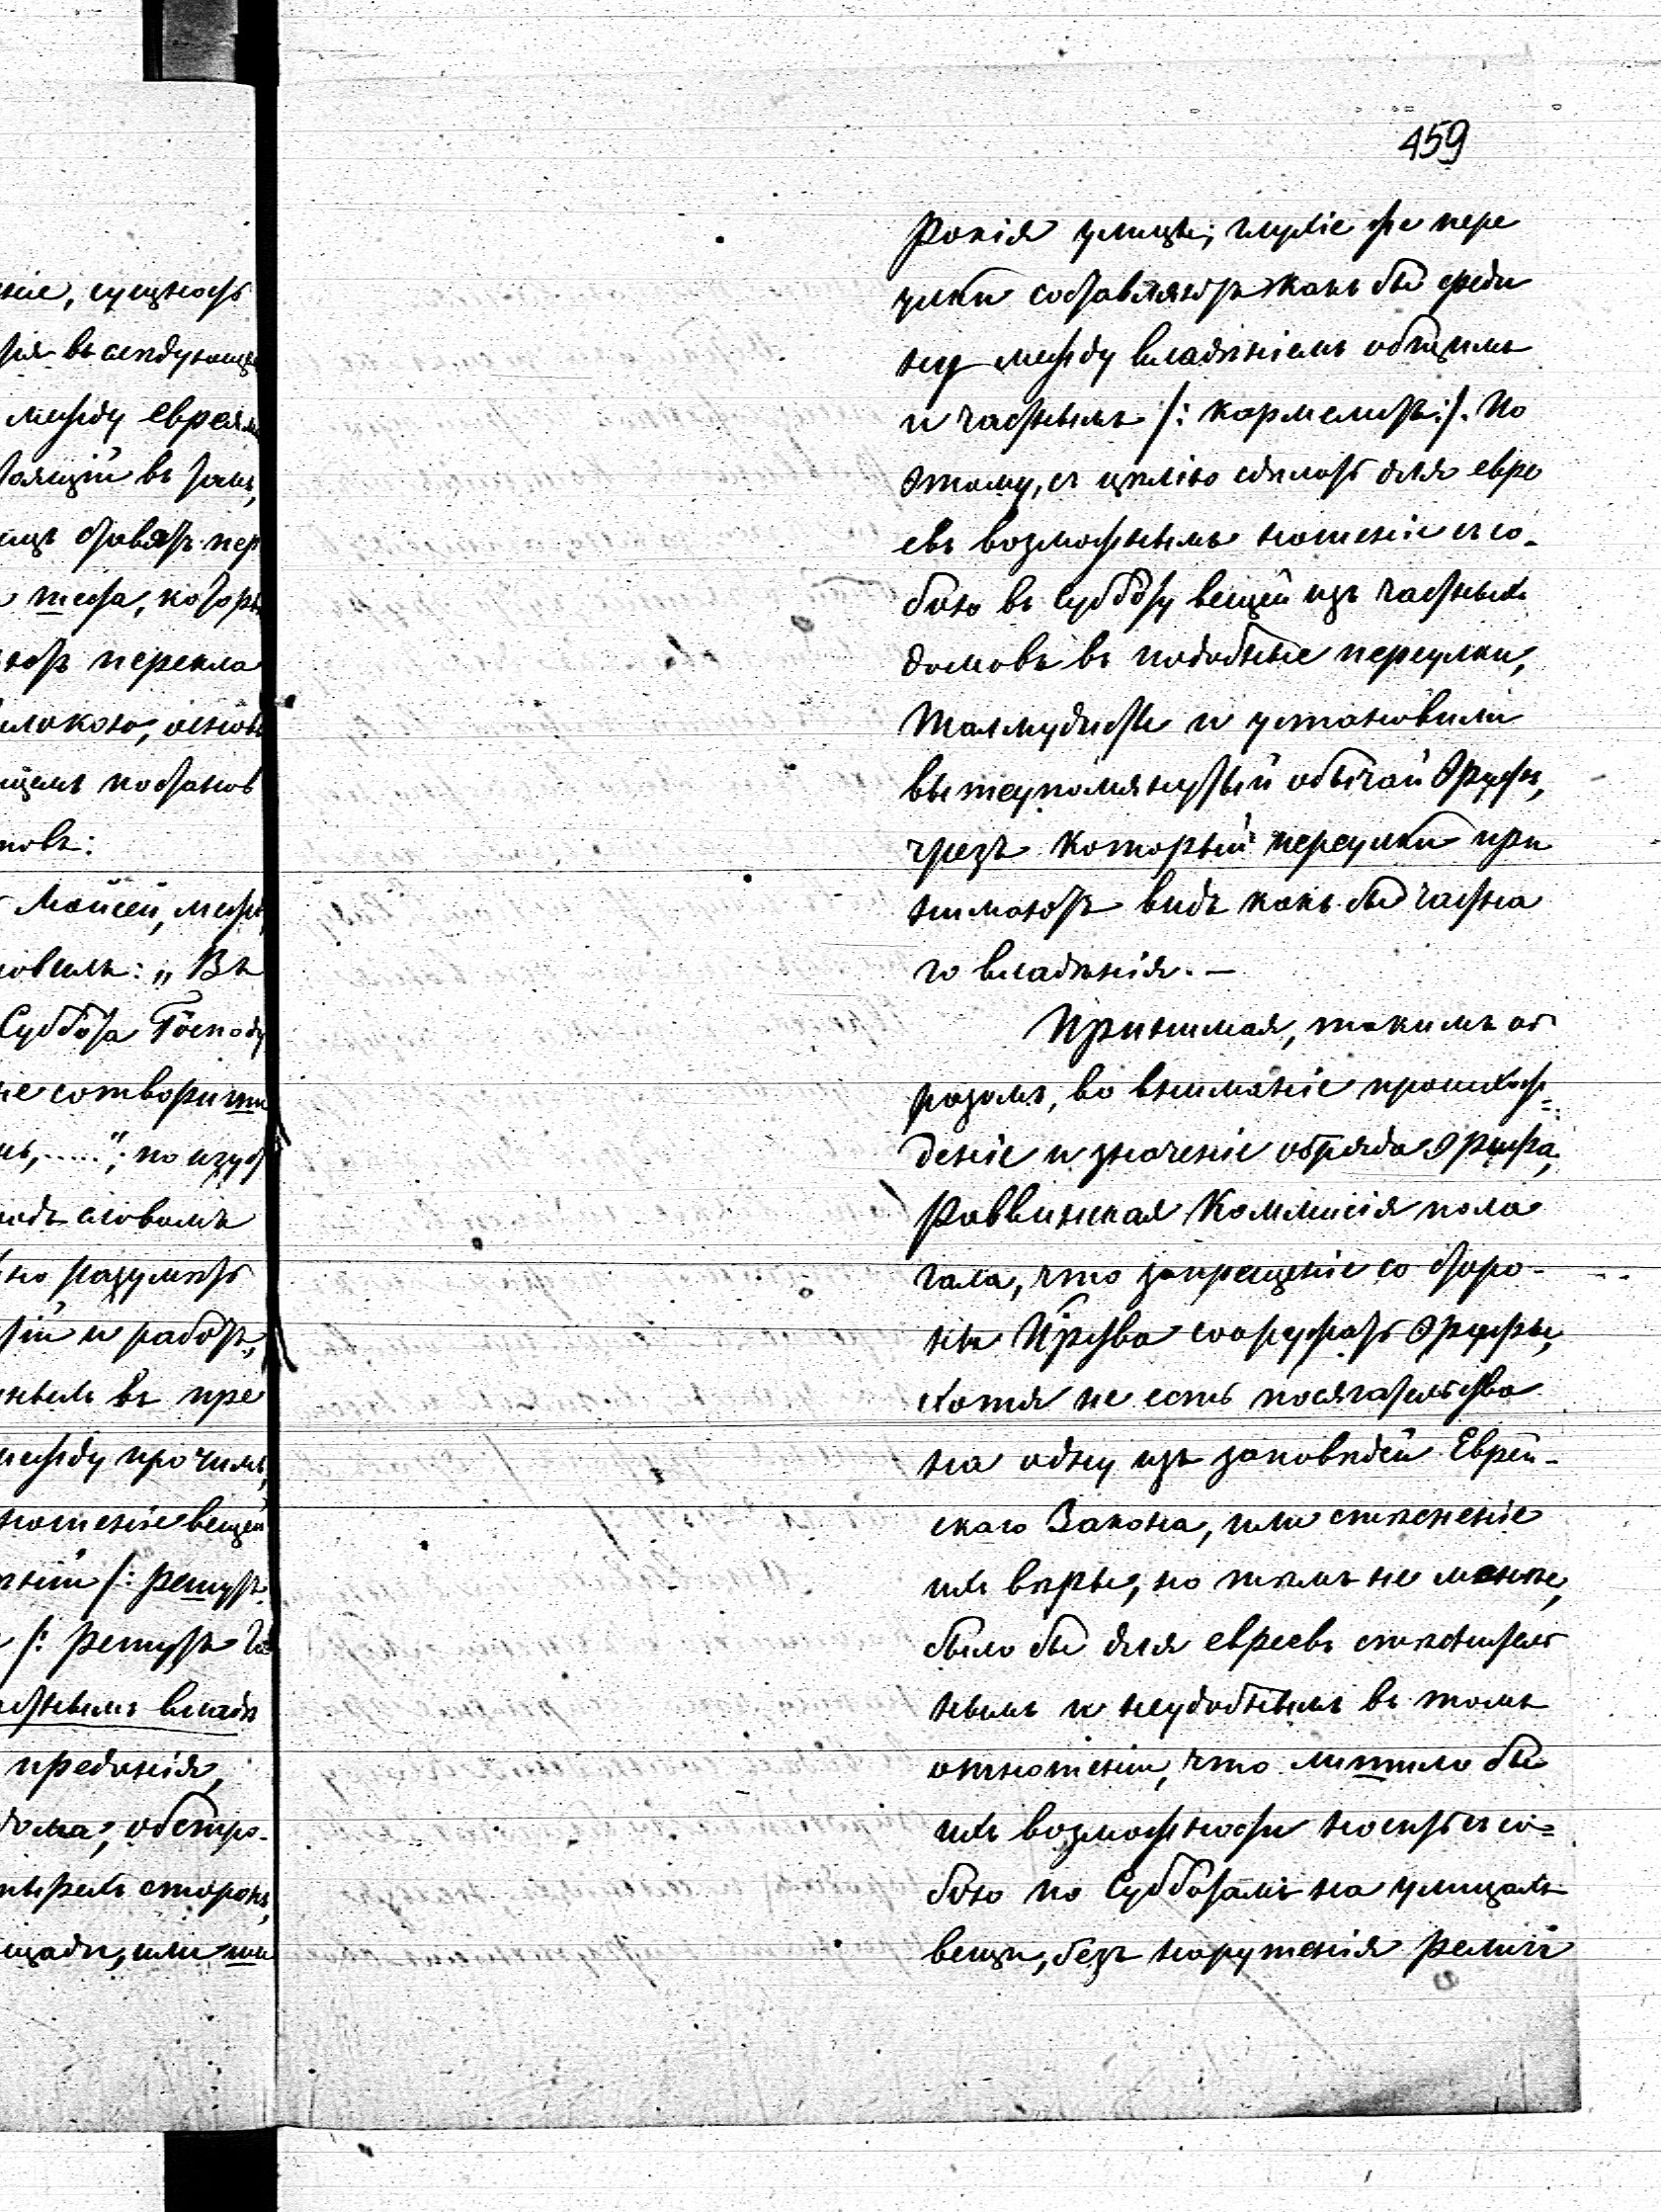 459
ніе, сущность
ся въ следующ
между евреям
тоящій въ том,
ицъ ставятъ пер
шеста, которы
ютъ перекла
новъ:
Моисей, меж
новилъ: „Въ
Суббота Господу
не сотвориши
..... "; по изуст
подъ словомъ
но разумѣть
тій и работъ,
въ пре
между прочимъ,
ношеніе вещей
/: решусъ
/: решусъ га
астнымъ владѣ
преданія,
дома, обстро-
тырехъ сторонъ,
щади, или ши
рокія улицы; глухіе же пере
улки составляютъ какъ бы среди
ну между владѣніемъ общимъ
и частнымъ /: кармелитъ :/. По
этому, съ цѣлію сдѣлать для евре
евъ возможнымъ ношеніе съ со-
бою въ Субботу вещей изъ частныхъ
домовъ въ подобные переулки,
Талмудисты и установили
вышеупомянутый обычай Эруфъ,
чрезъ который переулки при
нимаютъ видъ какъ бы частна
го владѣнія. —
Принимая, такимъ об
разомъ, во вниманіе происхож=
деніе и значеніе обряда Эруфа,
Раввинская Коммисія пола
гала, что запрещеніе со сторо-
ны Прства сооружать Эруфы,
хотя не есть посягательство
на одну изъ заповѣдей Еврей-
скаго Закона, или стѣсненіе
ихъ вѣры, но тѣмъ не менѣе,
было бы для евреевъ стѣснитель
нымъ и неудобнымъ въ томъ
отношеніи, что лишило бы
ихъ возможности носить съ со=
бою по Субботамъ на улицахъ
вещи, безъ нарушенія религі